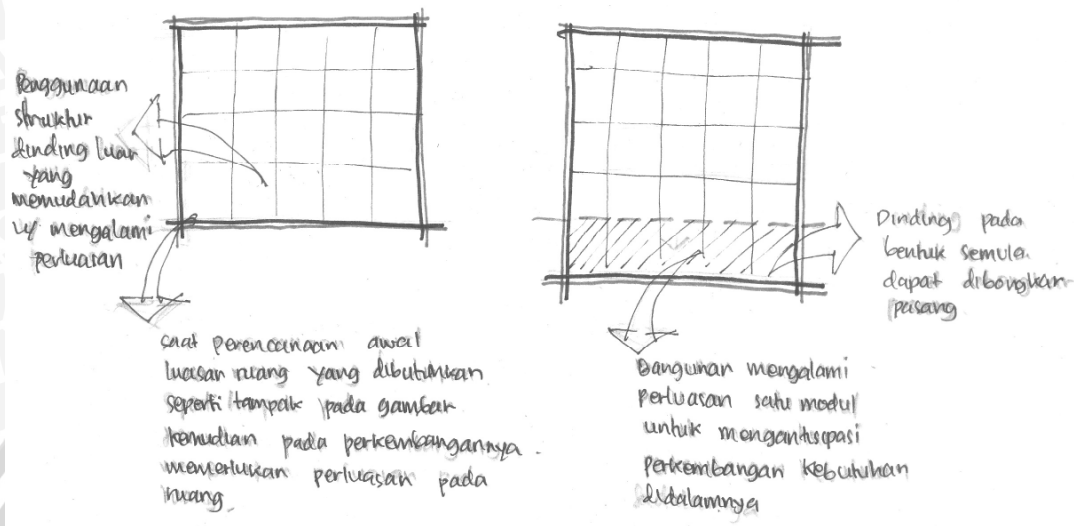 Penggunaan
struktur
dinding luar
yang
memudahkan
u/ mengalami
perluasan
saat perencanaan awal
luasan ruang yang dibutuhkan
seperti tampak pada gambar
kemudian pada perkembangannya
memerlukan perluasan pada
ruang.
Dinding pada
bentuk semula
dapat dibongkar
pasang
Bangunan mengalami
perluasan satu modul
untuk mengantisipasi
perkembangan kebutuhan
didalamnya